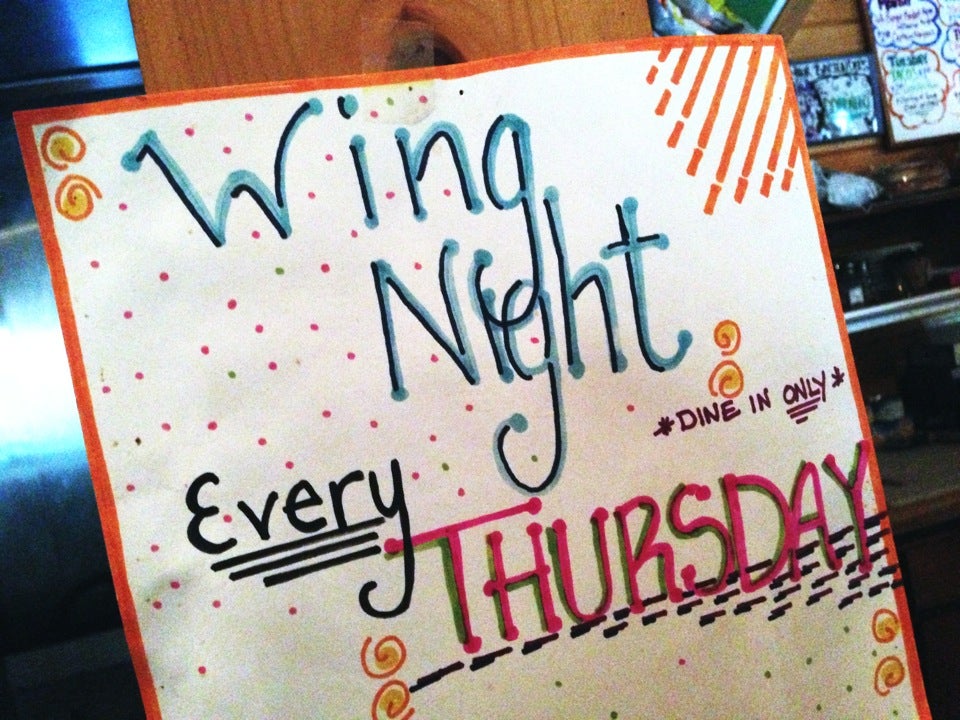 Wing
Night
*DINE IN ONLY*
Every
THURSDAY
TUESDAY